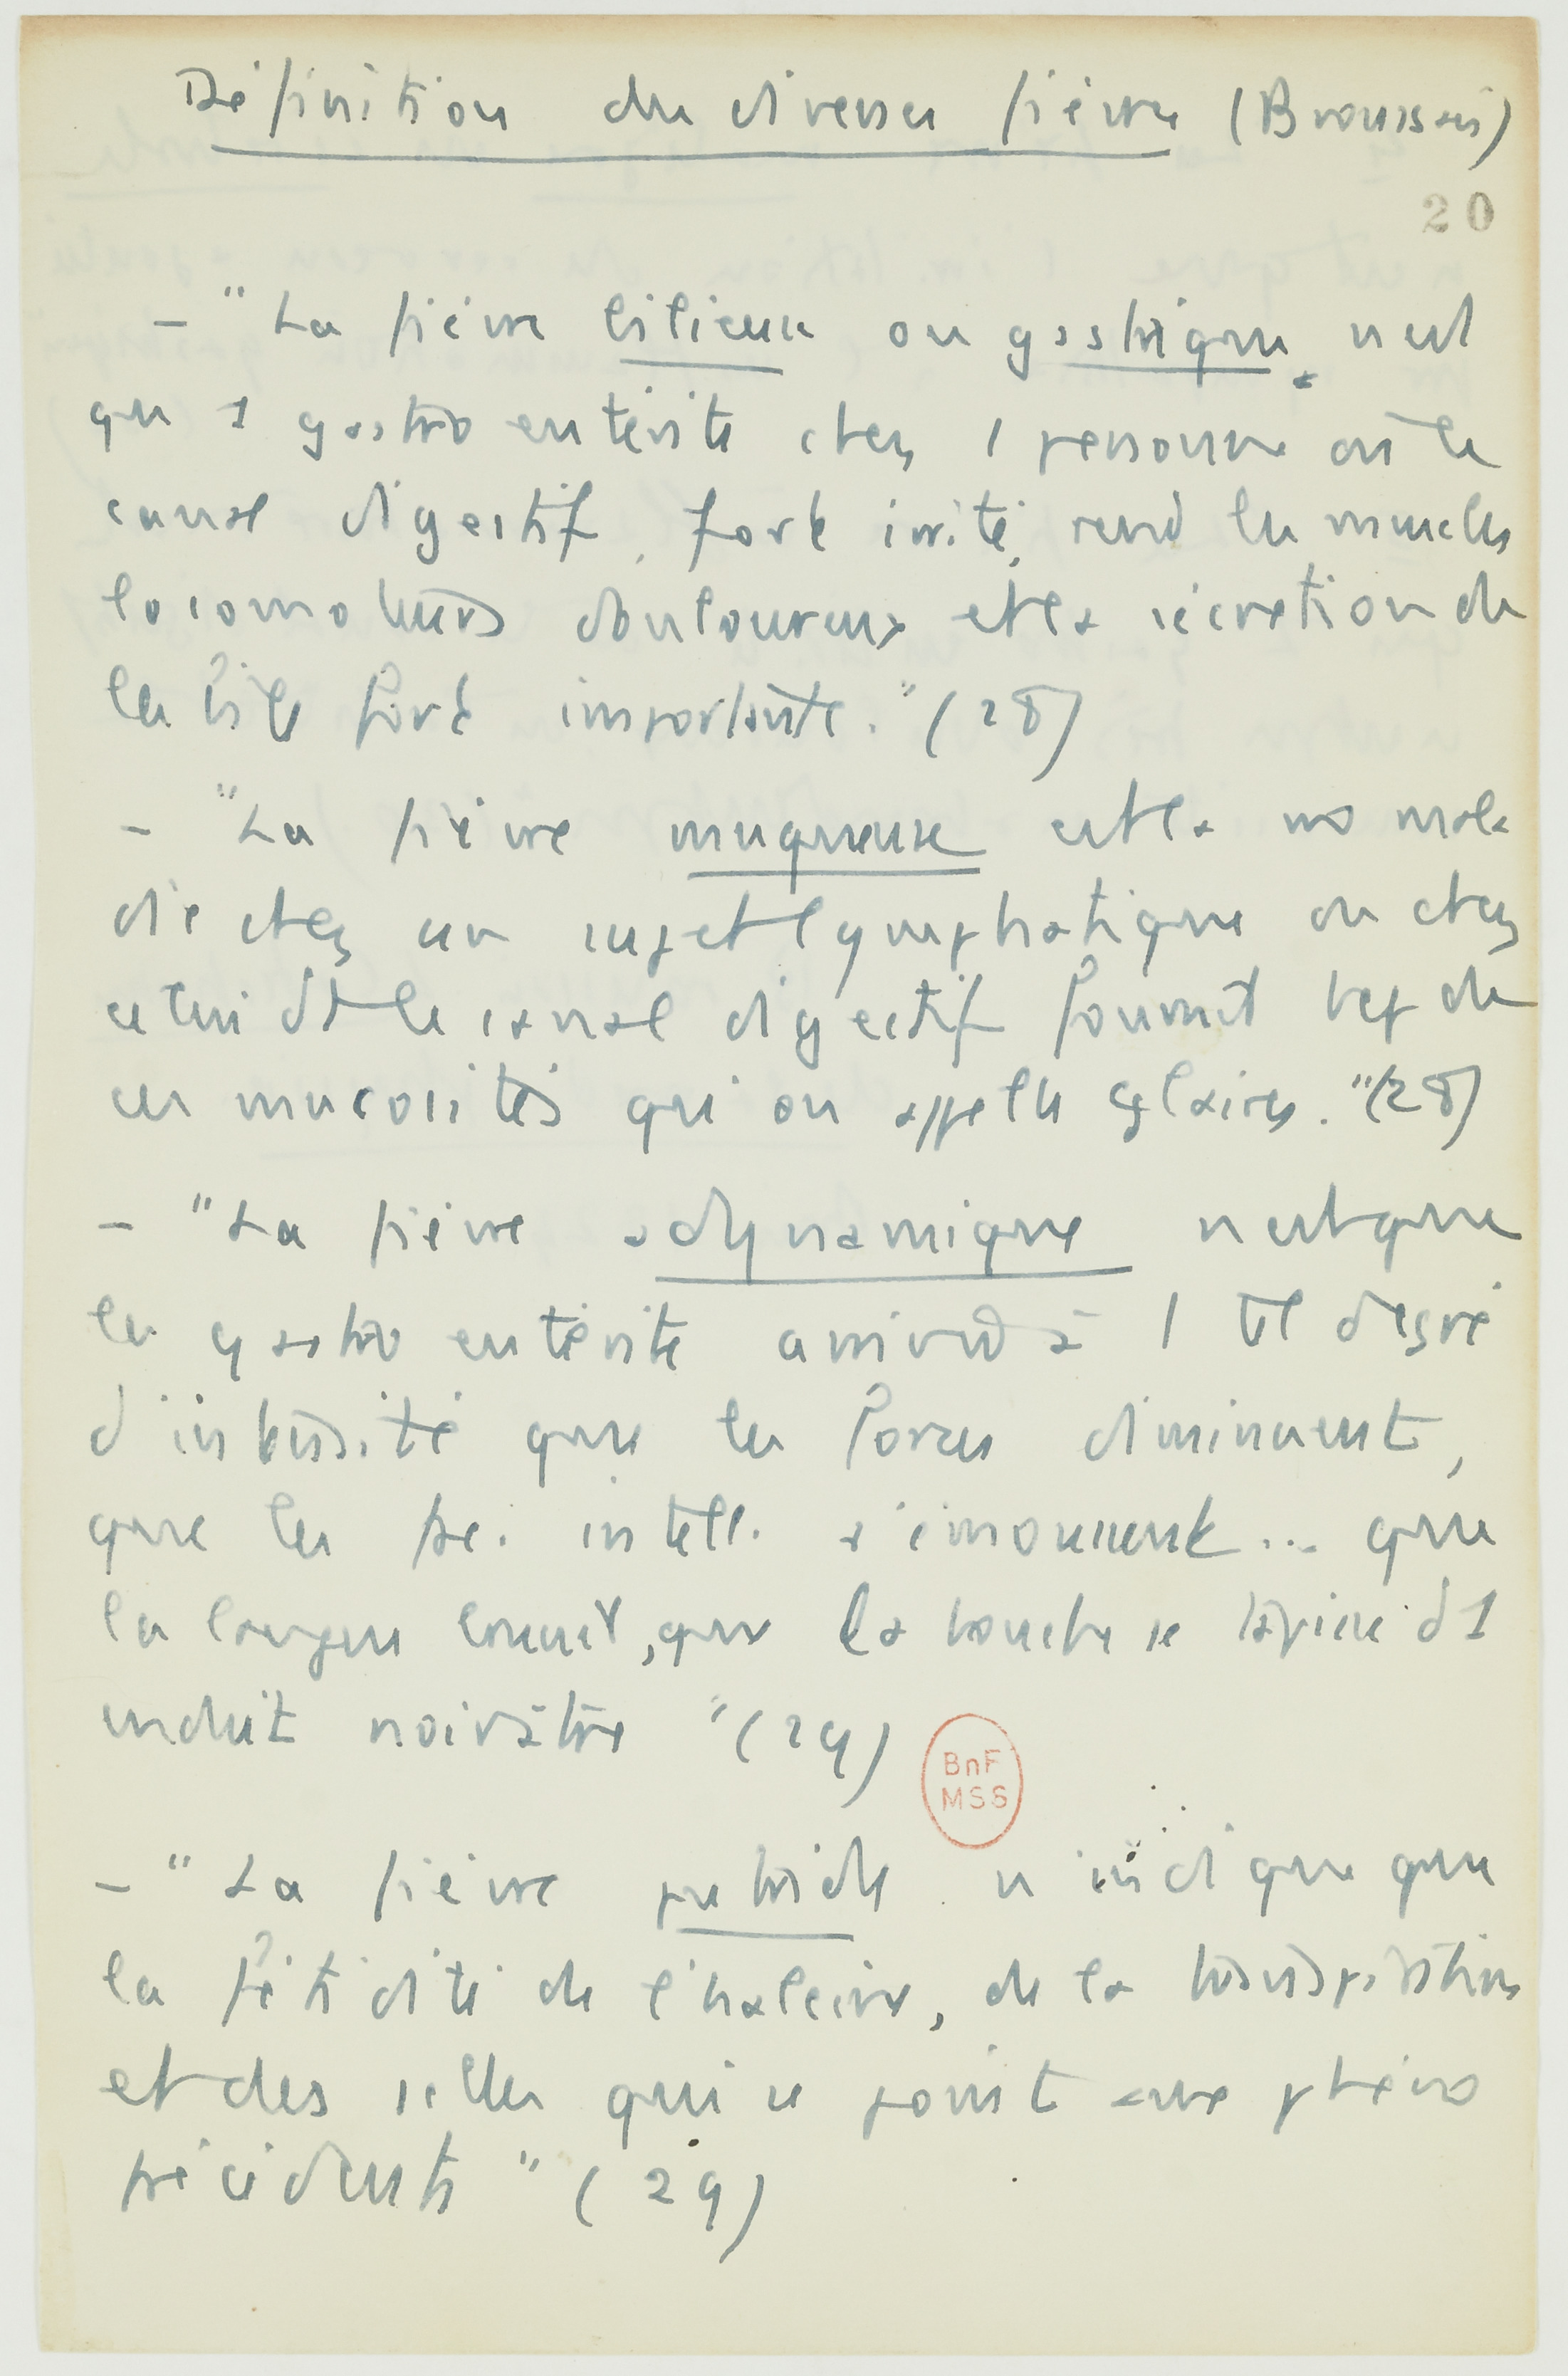 Définition des diverses fièvres (Broussais)
20
- "La fièvre bilieuse ou gastrique n'est
qu'1 gastro entérite chez 1 personne où le
canal digestif, fort irrité, rend les muscles
locomoteurs douloureux et la sécrétion de
la bile fort importante." (28)
- "La fièvre muqueuse est la mala
die chez un sujet lymphatique ou chez
celui dt le canal digestif fournit bcp de
ces mucosités qu'on appelle glaires." (28)
- "La fièvre adynamique n'est que
la gastro entérite arrivée à 1 tel degré
d'intensité que les forces diminuent,
que les fac. intell. s'émoussent... que
la langue brunit, que la bouche se tapisse d'1
enduit noirâtre" (29)
BnF
MSS
- "La fièvre putride n'indique que
la fétidité de l'haleine, de la transpiration
et des selles qui se joint aux phéno
précédents" (29)